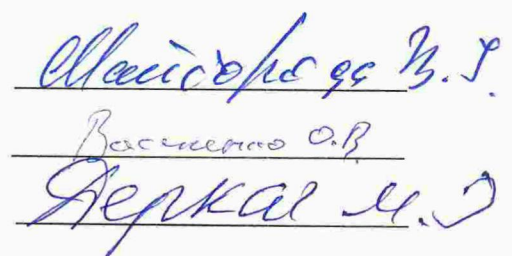 Майборода В. Г.
Васченко О.В
Деркач М. О